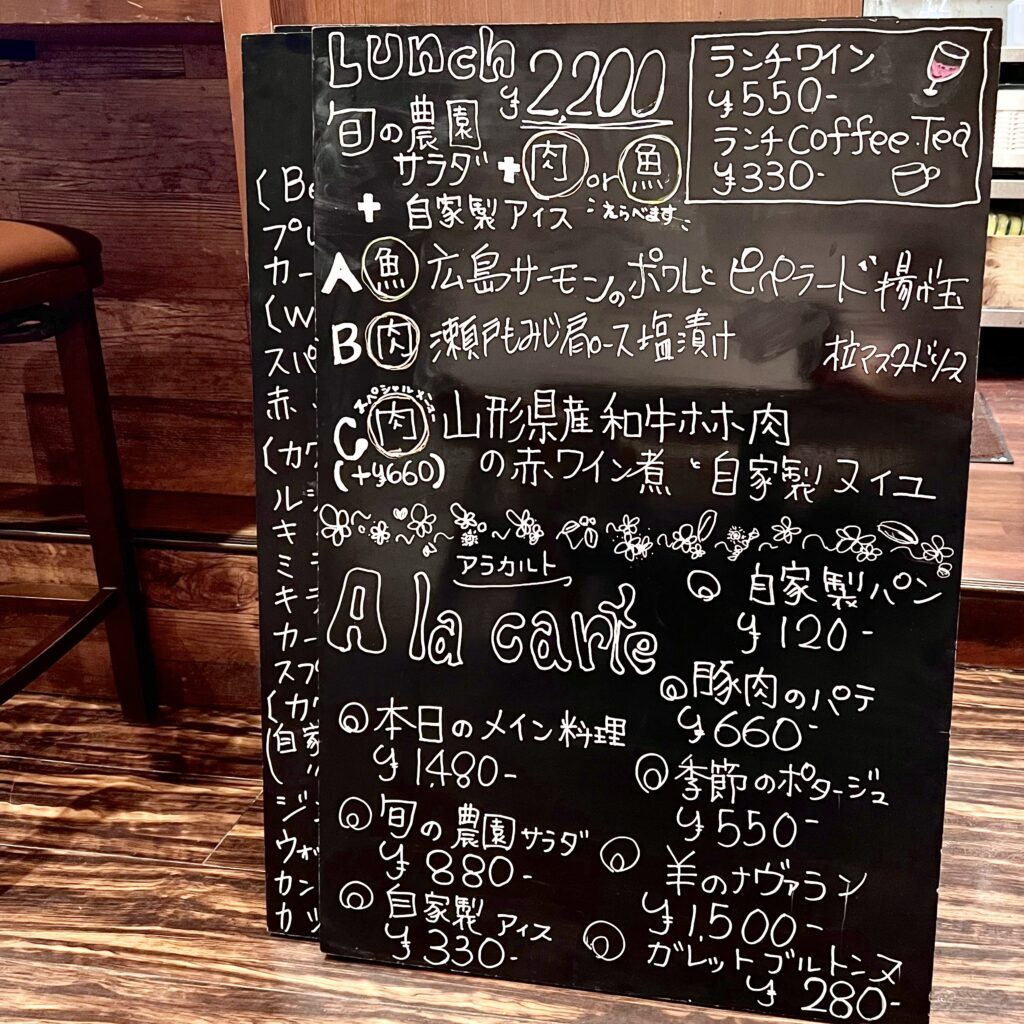 Lunch ¥2,200
旬の農園
サラダ + 肉 or 魚
+ 自家製アイス えらべます
ランチワイン
¥550-
ランチCoffee・Tea
¥330-
A 魚 広島サーモンのポワレとピペラード 揚げ玉
B 肉 瀬戸もみじ肩ロース塩漬け 粒マスタードソース
C 肉 山形県産和牛ホホ肉
(+¥660) の赤ワイン煮と自家製ヌイユ
アラカルト
A la carte
自家製パン
¥120-
豚肉のパテ
¥660-
本日のメイン料理
¥1,480-
季節のポタージュ
¥550-
旬の農園サラダ
¥880-
羊のナヴァラン
¥1,500-
自家製アイス
¥330-
ガレットブルトンヌ
¥280-
(Be
プレ
カー
(W
スパ
赤
(カク
ル
キ
ミ
キ
カー
スプ
(カク
(自家
ジ
ウォ
カン
カッ